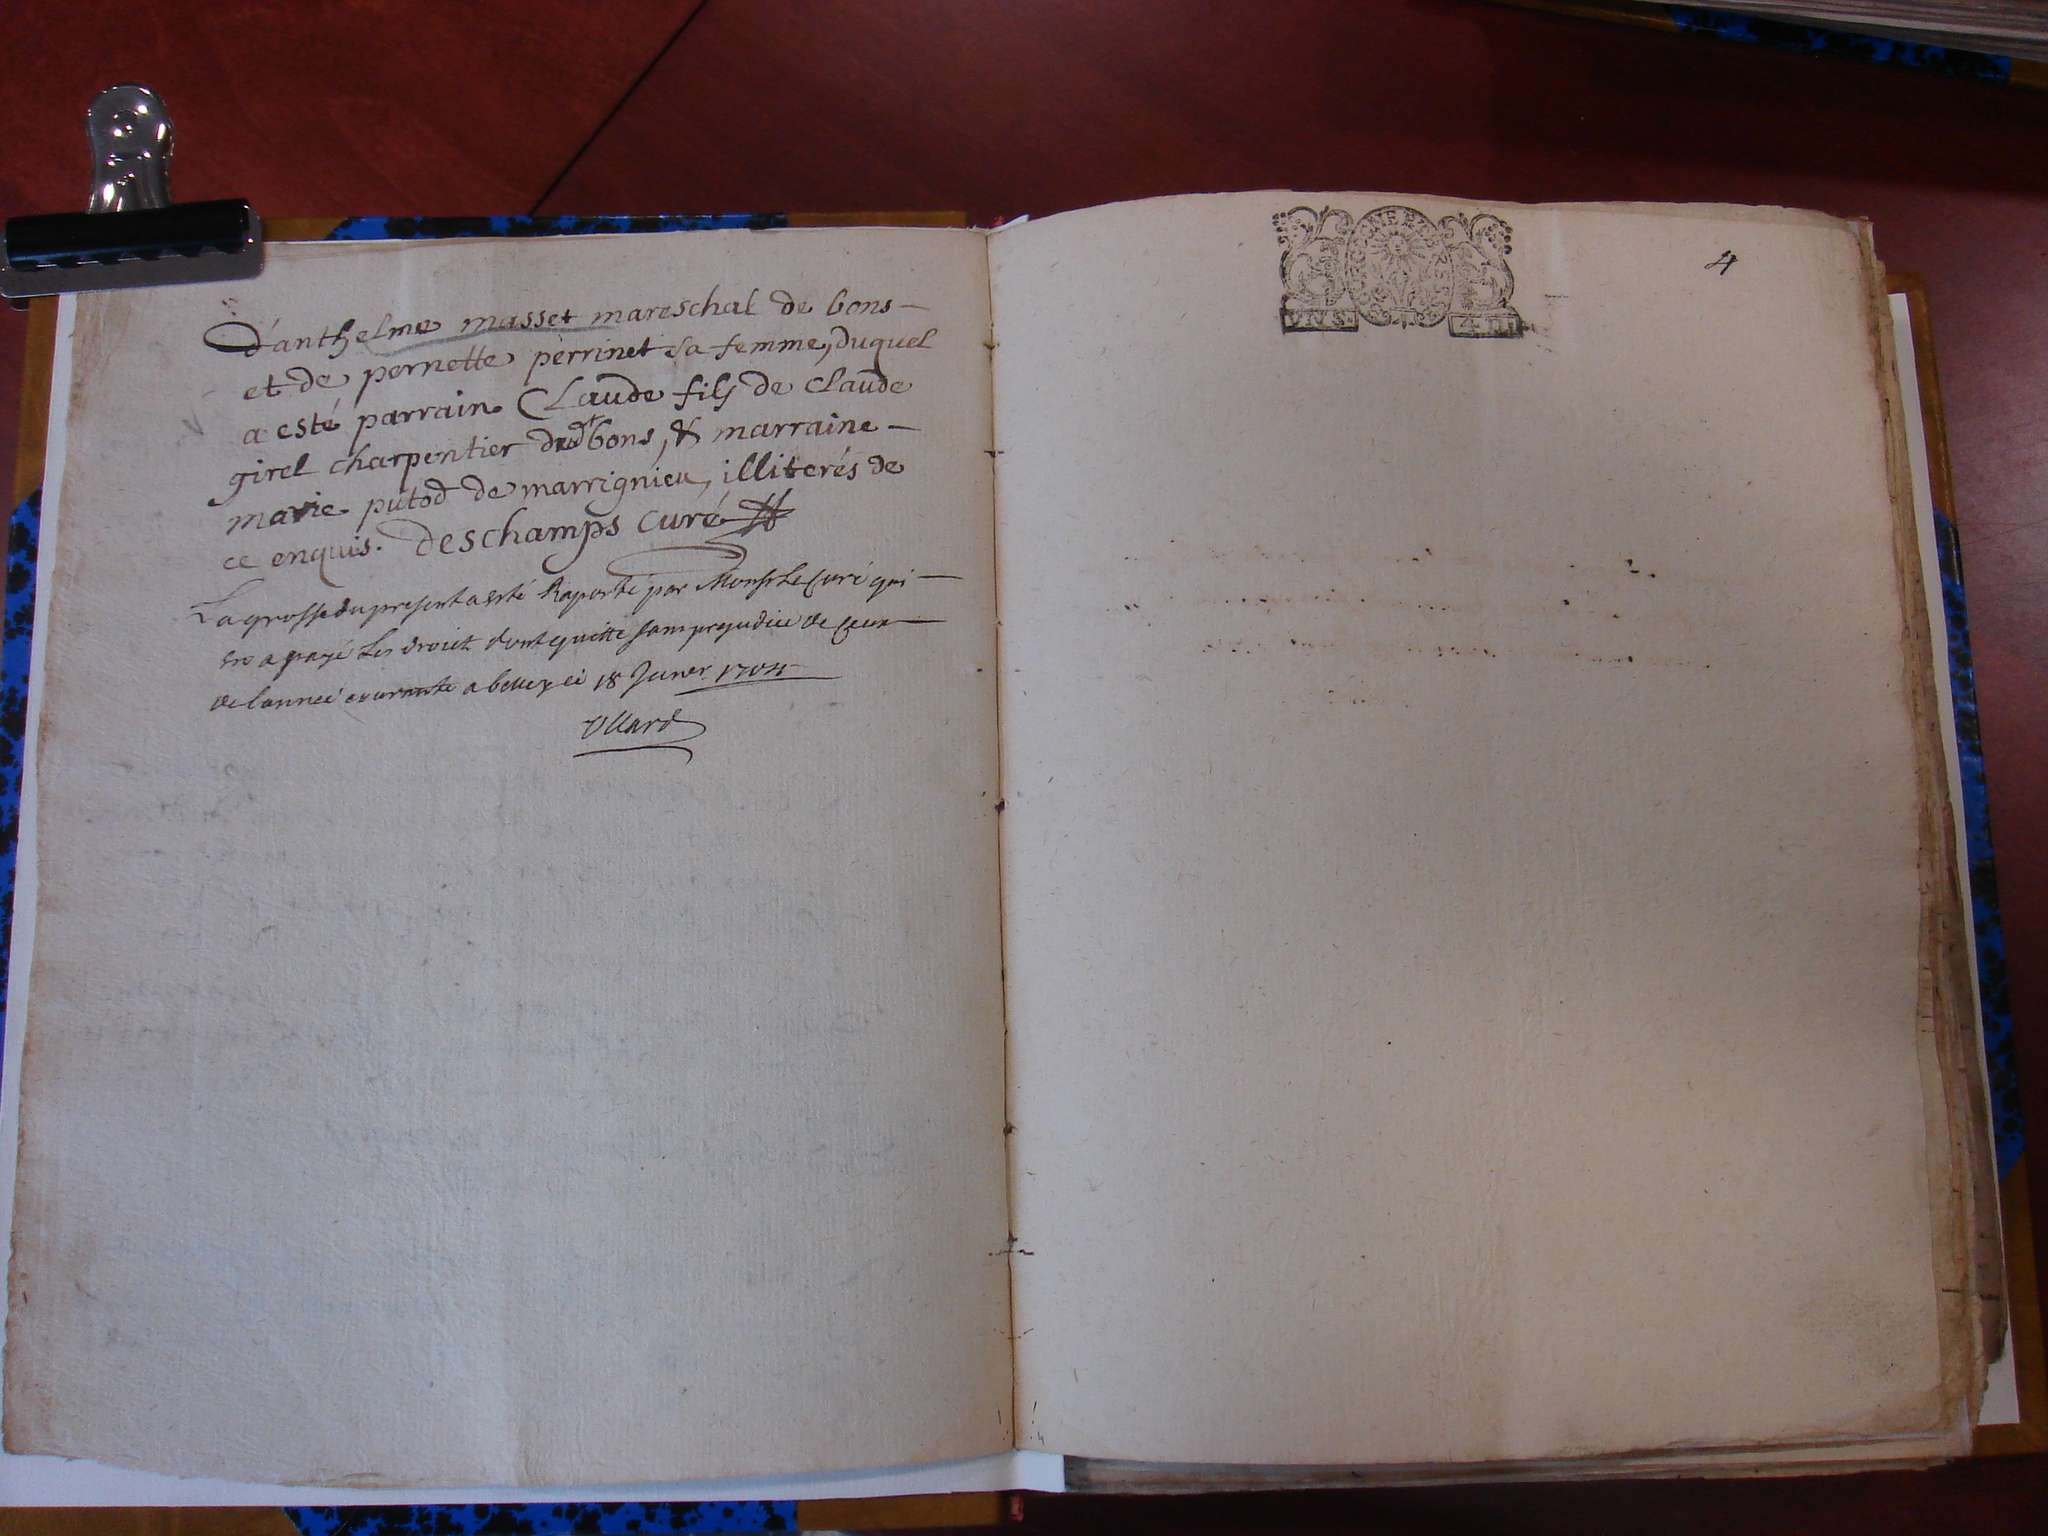 d'anthelme masset mareschal de bons
et de pernette perrinet sa femme, duquel
a esté parrain Claude fils de Claude
girel charpentier dud^t bons, & marraine
marie putod de marrignieu, illiterés de
ce enquis. deschamps curé
La grosse du present a esté Raporté par Monsr Le Curé qui
en a payé Les droict dont quitte sans prejudice de Ceux
de lannee courante a belley ce 18 Janer 1704
Ollard
4
BOURGOGNE ET BRESSE
VN S.
4 D